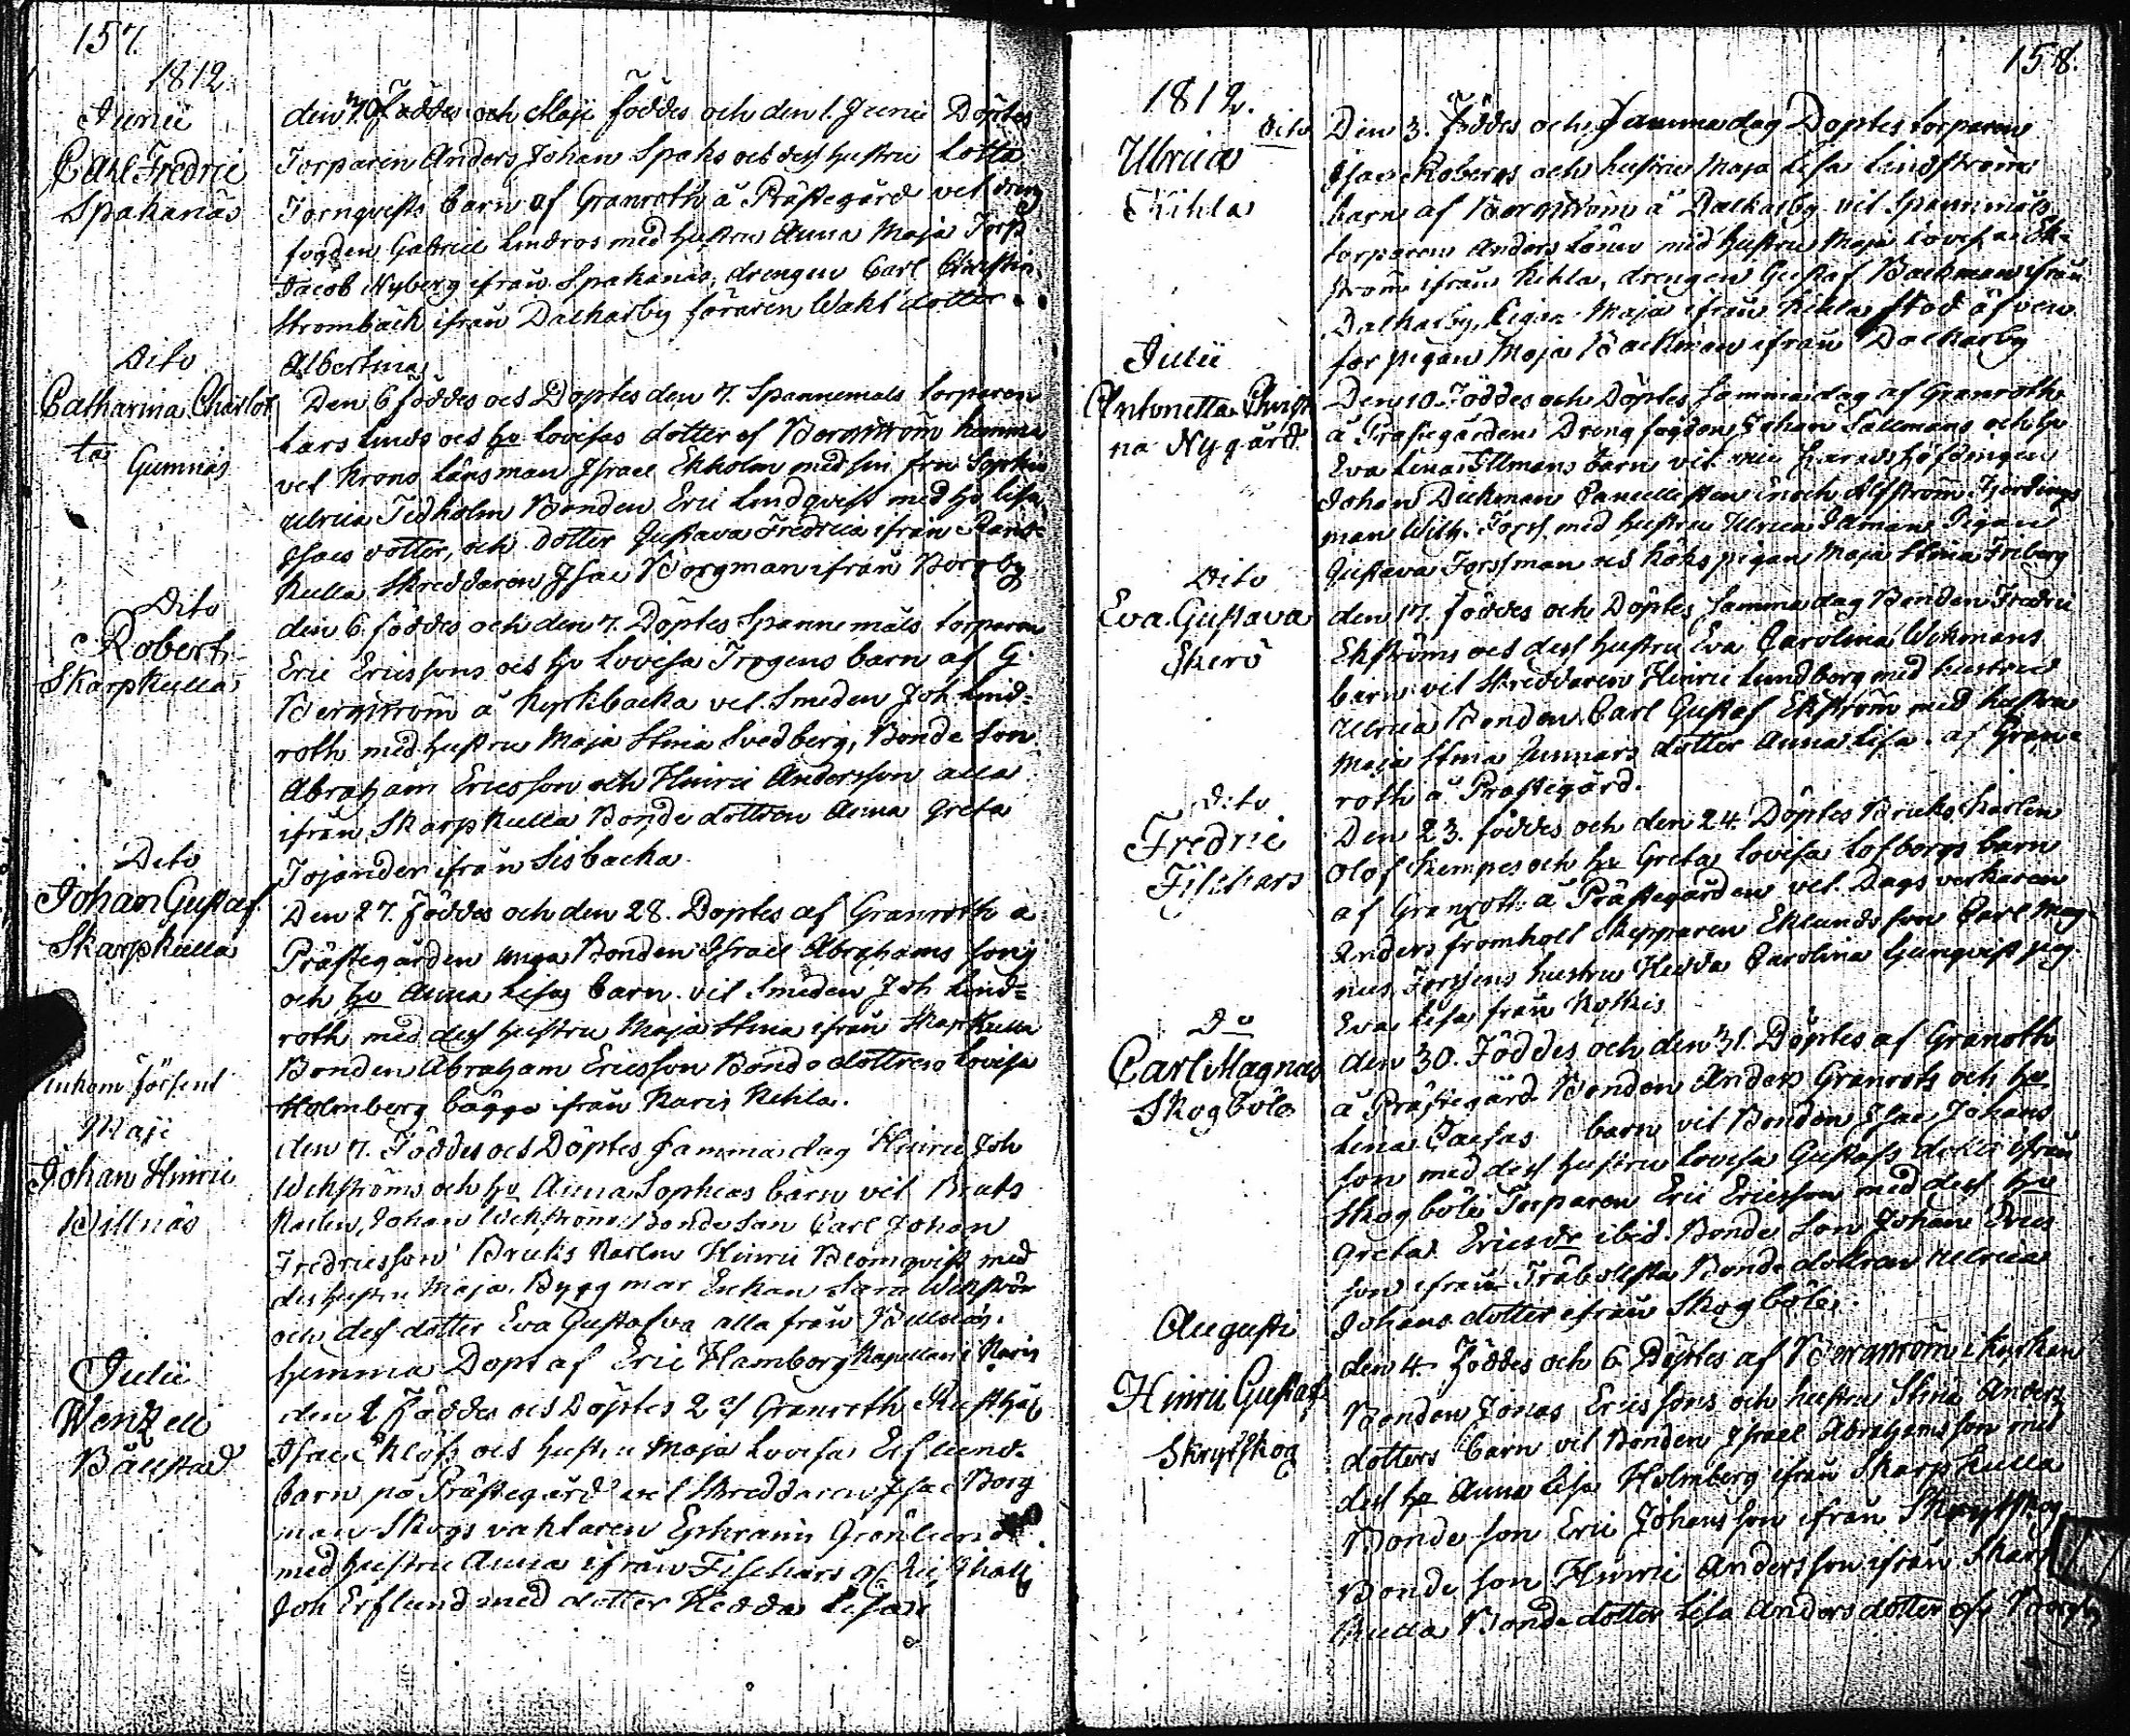 157.
1812.
Junii
Carl Fredric
Spakanäs
den Föddes och Maji föddes och den 1. Junii Döptes
Torparen Anders Johan Spaks och dess hustru Lotta
Törnqvists barn af Granroth å Prästegård vet. dreng
fogden Gabriel Lindros med hustru Anna Maja Torp
Jacob Nyberg ifrån Spakanäs, drengen Carl Christia
Strömbäck ifrån Dalkarby föraren Wahl dotter
Albertina
Dito
Catharina Charlot
ta
Gumnäs
Den 6 föddes och Döptes den 7. Spannemåls torparen
Lars Linds och hu Lovisas dotter af Bergström hemma
vet Krono Länsman Israel Ekholm med sin fru Sophia
Ulrica Tidholm Bonden Eric Lindqvist med hu Lisa
Isacs dotter, och dotter Gustava Fredrica ifrån
Kulla Skreddaren Isac Borgman ifrån Borgby
Dito
Robert
Skarpkulla
den 6 föddes och den 7. Döptes Spannemåls torparen
Eric Ericssons och hu Lovisa Trogens barn af G
Bergström å Kyrkbacka vet. Smeden Joh Lind=
roth med hustru Maja Stina Svedberg, Bonde Son
Abraham Ericsson och Hinric Andersson alla
ifrån Skarpkulla Bonde dottren Anna Greta
Tojander ifrån Lisbacka
Dito
Johan Gustaf
Skarpkulla
Den 27. Föddes och den 28. Döptes af Granroth å
Prästegården unga Bonden Israel Abrahams sons
och hu Anna Lisas barn vit Smeden Joh Lind=
roth med dess hustru Maja Stina ifrån Skarpkulla
Bonden Abraham Ericsson Bonde dottren Lovisa
Holmberg bägge ifrån Karis Kehla.
inkom försent
Maji
Johan Hinric
Billnäs
den 7. Föddes och Döptes samma dag Hinric Joh
Wekströms och hu Anna Sophias barn vit Bruks
Karlen, Johan Wekström Bonde Son Carl Johan
Fredricsson Bruks Karlen Hinric Blomqvist med
des hustru Maja Byggmar Enkan Sara Wekström
och dess dotter Eva Gustafva alla från Billnäs.
hemma Döpt af Eric Hamberg Kapellan i Karis
Julii
Wentzell
Bällstad
den 2 Föddes och Döptes 2 af Granroth
Israel Klöfs och hustru Maja Lovisa Erflunds
barn på Prästegård vit Skreddaren Isac Borg
man Skogs vaktaren Ephraim Grönlund
med hustru Anna ifrån Fiskars
Joh Erflund med dotter Hedda Lisa
158.
1812.
Dito
Ulrica
Kihla
Den 3. Föddes och samma dag Döptes torparen
Isac Robergs och hustru Maja Lisa Lindströms
barn af Bergström å Dalkarby vit Spannmåls
torparen Anders Lönn med hustru Maja Lovisa Ek=
ström ifrån Kihla, drengen Gustaf Backman ifrån
Dalkarby, Pigan Maja ifrån Kihla stod öfven
för pigan Maja Backman ifrån Dalkarby
Julii
Antonetta Christi
na Nygård
Den 10 Föddes och Döptes samma dag af Granroth
å Prästegården Dreng fogden Johan Sallmans och hu
Eva Lina Illmans barn vit Häradshöfdingen
Johan Dickman Cancellisten Enoch Alfström Fjerdings
man Wilh. Forss med hustru Ulrica Pigan
Gustava Forssman och Köks pigan Maja Stina Friberg
Dito
Eva Gustava
Skerö
den 17. föddes och Döptes samma dag Bonden Fredric
Ekströms och dess hustru Eva Carolina Wikmans
barn vit Skreddaren Hinric Lundberg med hustru
Ulrica Bonden Carl Gustaf Ekström med hustru
Maja Stina Gunnars dotter Anna Lisa. af Gran=
roth å Prästegård.
Dito
Fredric
Fiskars
Den 23. föddes och den 24. Döptes Bruks karlen
Olof Kempes och hu Greta Lovisa Lofborgs barn
af Granroth å Prästegården vet. Dags verkaren
Anders Fromholt Skepparen Eklunds son Carl Mag=
nus, Forssens hustru Hedda Carolina Ljungqvist pig
Eva Lisa från Kothis
Do
Carl Magnus
Skogböle
den 30. Föddes och den 31. Döptes af Granoth
å Prästegård Bonden Anders Granroths och hu
Lena Cajsas barn vit Bonden Isac Johans
son med dess hustru Lovisa Gustafs doter ifrån
Skogböle Torparen Eric Ericsson med dess hu
Greta Ericsdr ibid. Bonde Son Johan Erics
son ifrån Träbollsta Bonde dottren Ulrica
Johans dotter ifrån Skogböle.
Augusti
Hinric Gustaf
Skrytskog
den 4. Föddes och 6 Döptes af Bergström i kyrkan
Bonden Jonas Ericssons och hustru Stina Anders
dotters barn vit Bonden Israel Abrahamsson med
dess hu Anna Lisa Holmberg ifrån Skarpkulla
Bonde son Eric Johansson ifrån Skrytskog
Bonde son Hinric Andersson ifrån Skarp
kulla Bonde dotter Lisa Anders dotter ifr Borgby